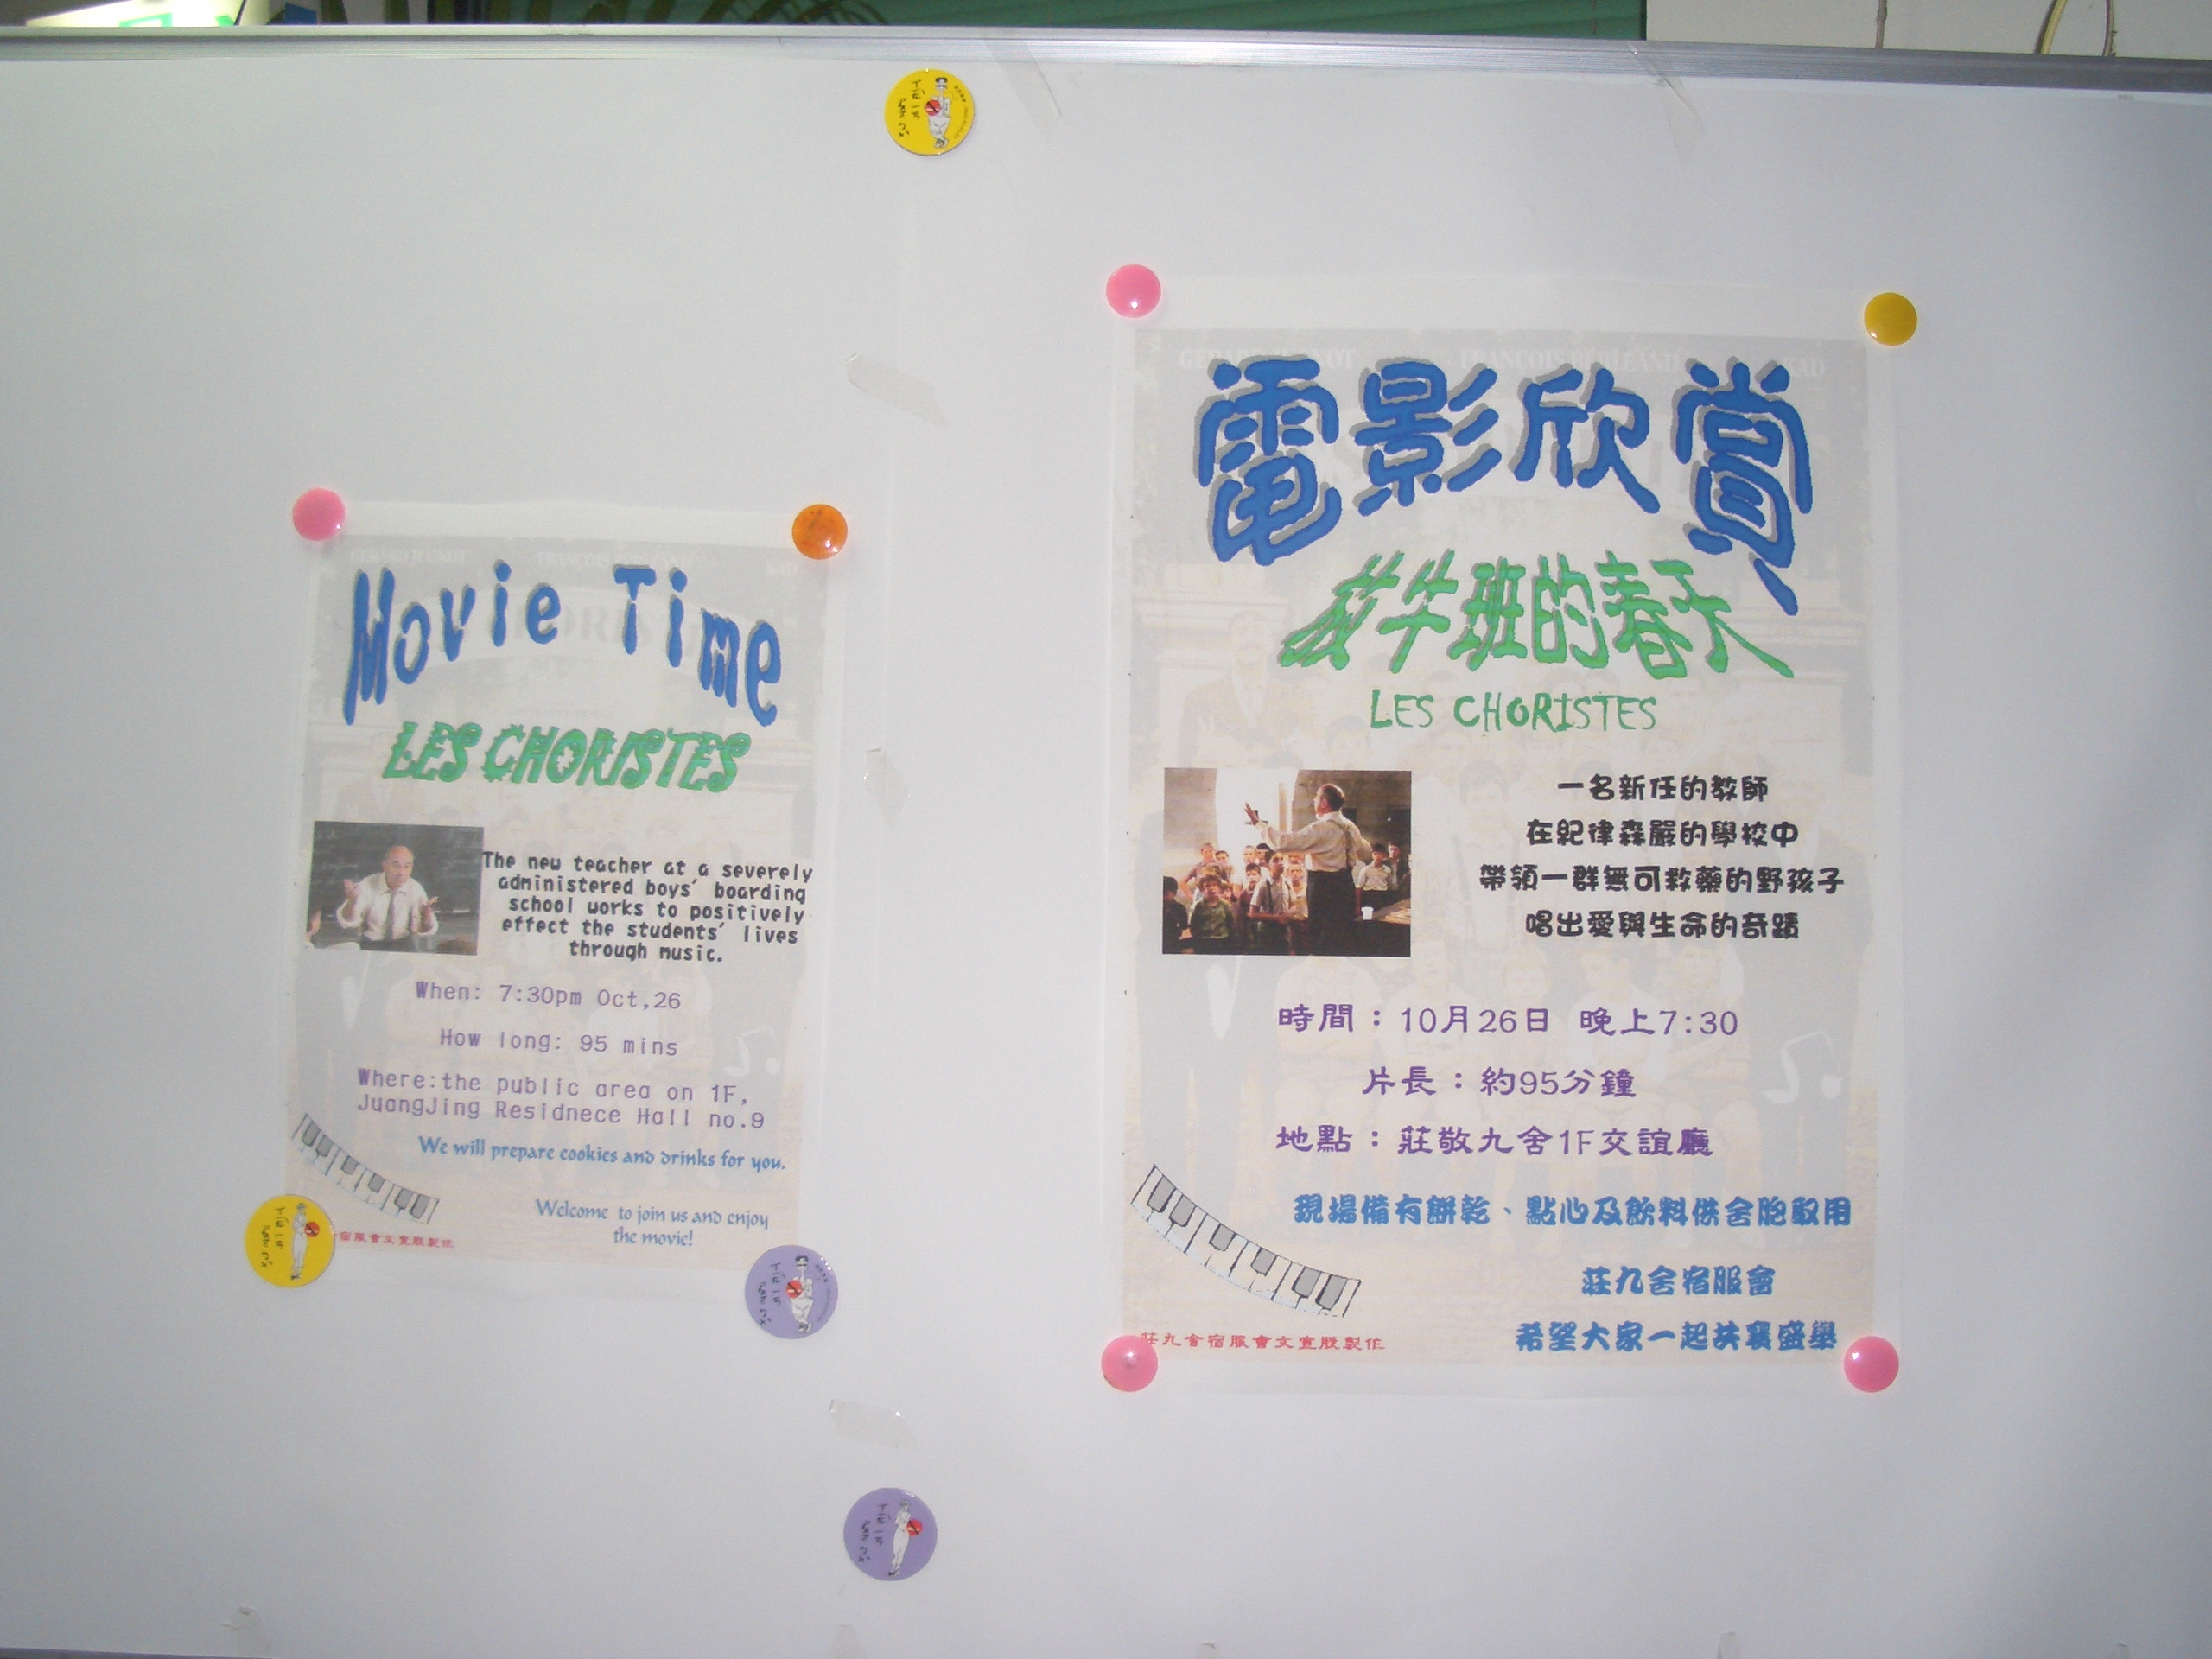 Movie Time
LES CHORISTES
The new teacher at a severely
administered boys' boarding
school works to positively
effect the students' lives
through music.
When: 7:30pm Oct,26
How long: 95 mins
Where:the public area on 1F,
JuangJing Residnece Hall no.9
We will prepare cookies and drinks for you.
Welcome to join us and enjoy
the movie!
宿服會文宣股製作
電影欣賞
放牛班的春天
LES CHORISTES
一名新任的教師
在紀律森嚴的學校中
帶領一群無可救藥的野孩子
唱出愛與生命的奇蹟
時間：10月26日 晚上7:30
片長：約95分鐘
地點：莊敬九舍1F交誼廳
現場備有餅乾、點心及飲料供舍胞取用
莊九舍宿服會
希望大家一起共襄盛舉
莊九舍宿服會文宣股製作